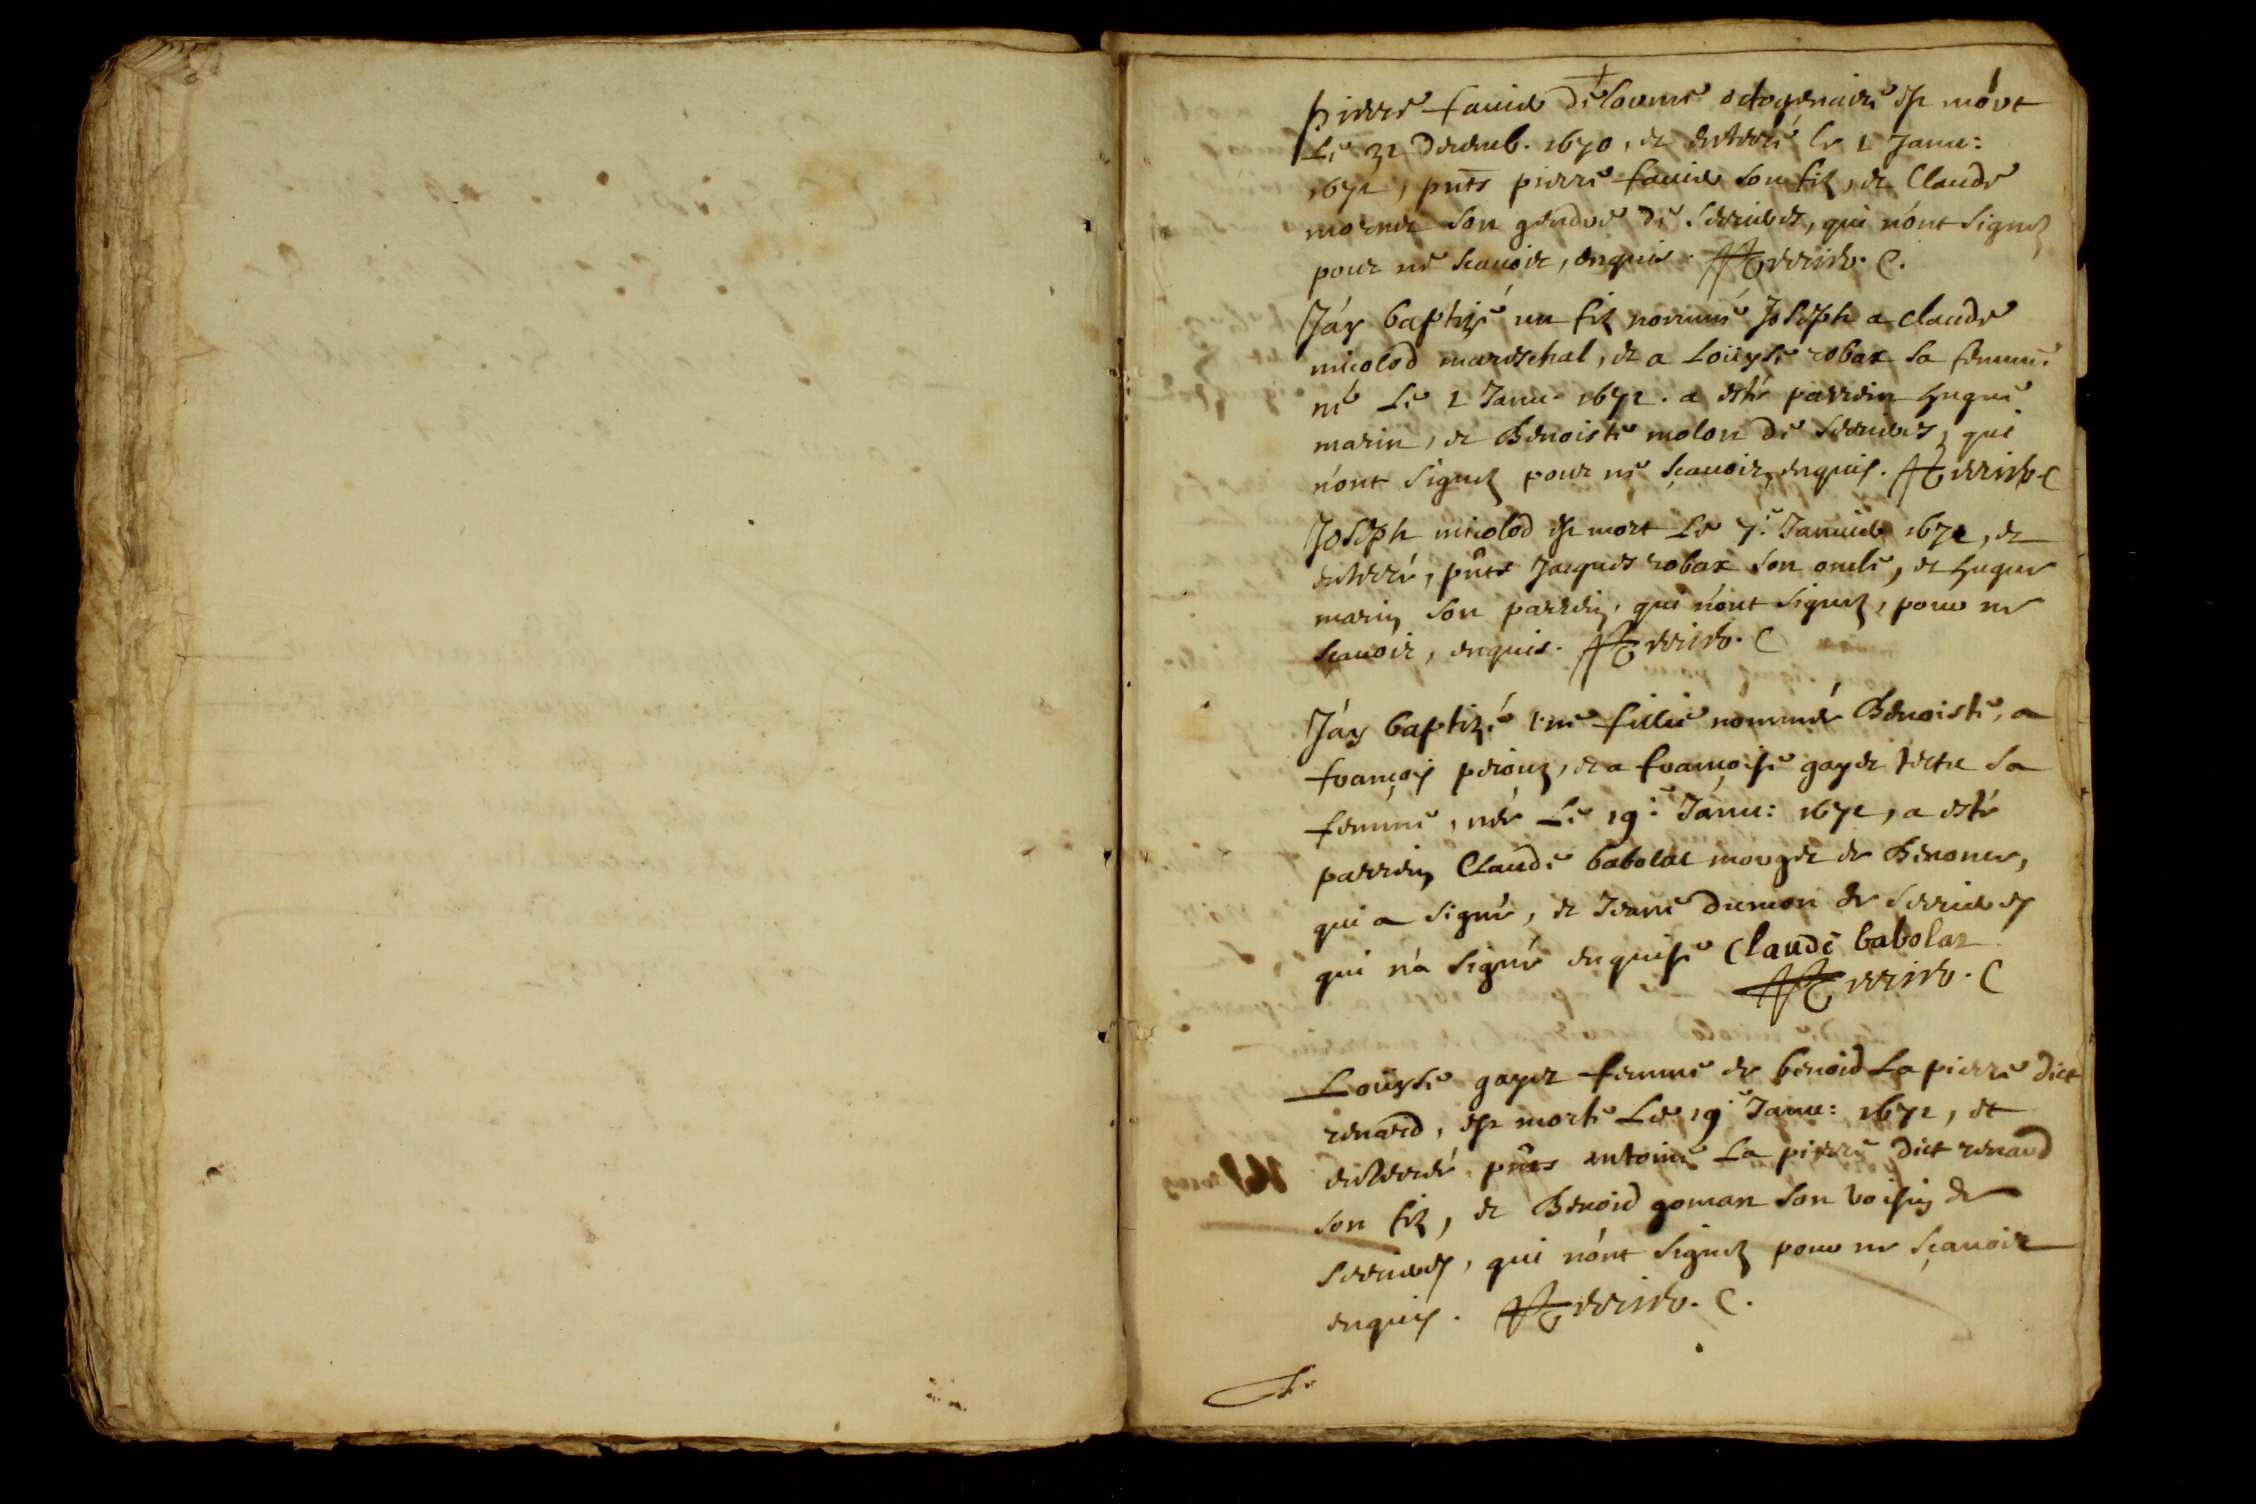 pierre favier octogenaire est mort
Le 31 Decemb. 1670, et enterré le 1 Janu:
1671, pnts pierre favier son filz, et Claude
mornet son gendre de Serrieres, qui n'ont signez
pour ne scauoir, enquis. C.
J'ay baptizé un filz nommé Joseph a claude
nicolod mareschal, et a Loüyse robax sa femme
né Le 1 Janu. 1671. a esté parrein hugue
marin, et Benoiste molon de Serrieres, qui
n'ont signez pour ne sçauoir, enquis. C
Joseph nicolod est mort Le 7.e Januier 1671, et
enterré, pnts Jacques robax son oncle, et hugue
marin son parrein, qui n'ont signez, pour ne
scauoir, enquis. C
J'ay baptizé vne fillie nommée Benoiste, a
françois peronz, et a françoise gayet sa
femme, née Le 19.e Janu: 1671, a esté
parrein Claude babolat mouget de
qui a signé, et Jeane dumon de Serrieres
qui n'a signé enquise Claude babolat
C
Loüyse gayet femme de benoid La pierre dict
renard, est morte Le 19.e Janu: 1671, et
enterrée pnts antoine La pierre dict renard
son filz, et Benoid goman son voisin de
Serrieres, qui n'ont signez pour ne sçauoir
enquis. C.